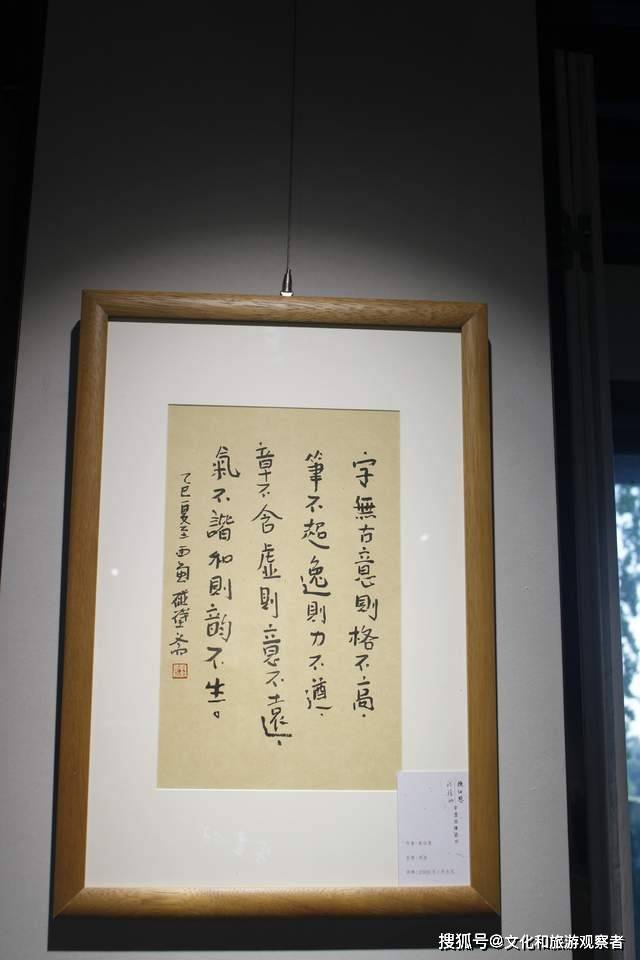 字無古意則格不高.
筆不超逸則力不遒.
章不含虛則意不遠.
氣不諧和則韵不生。
乙巳夏至西
搜狐号@文化和旅游观察者